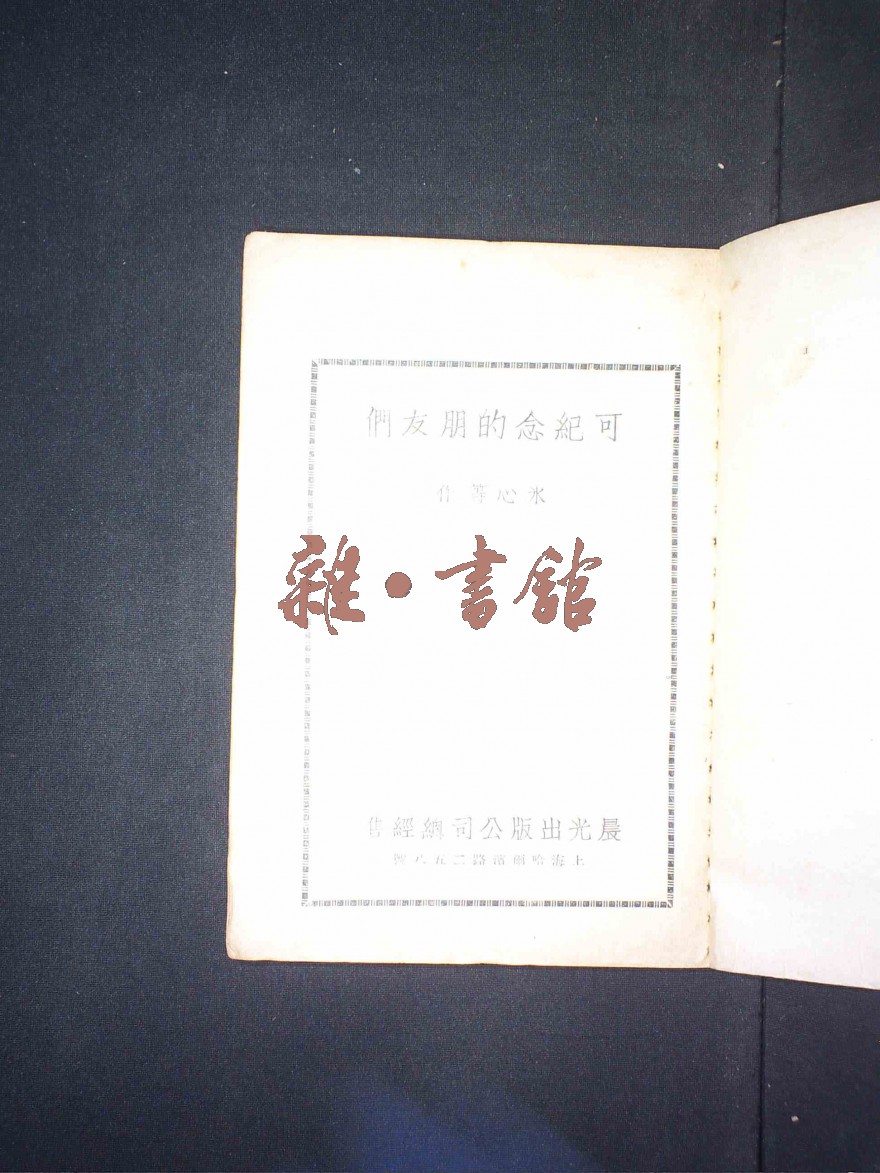 可紀念的朋友們
冰心等作
雜•書館
晨光出版公司總經售
上海哈爾濱路二五八號